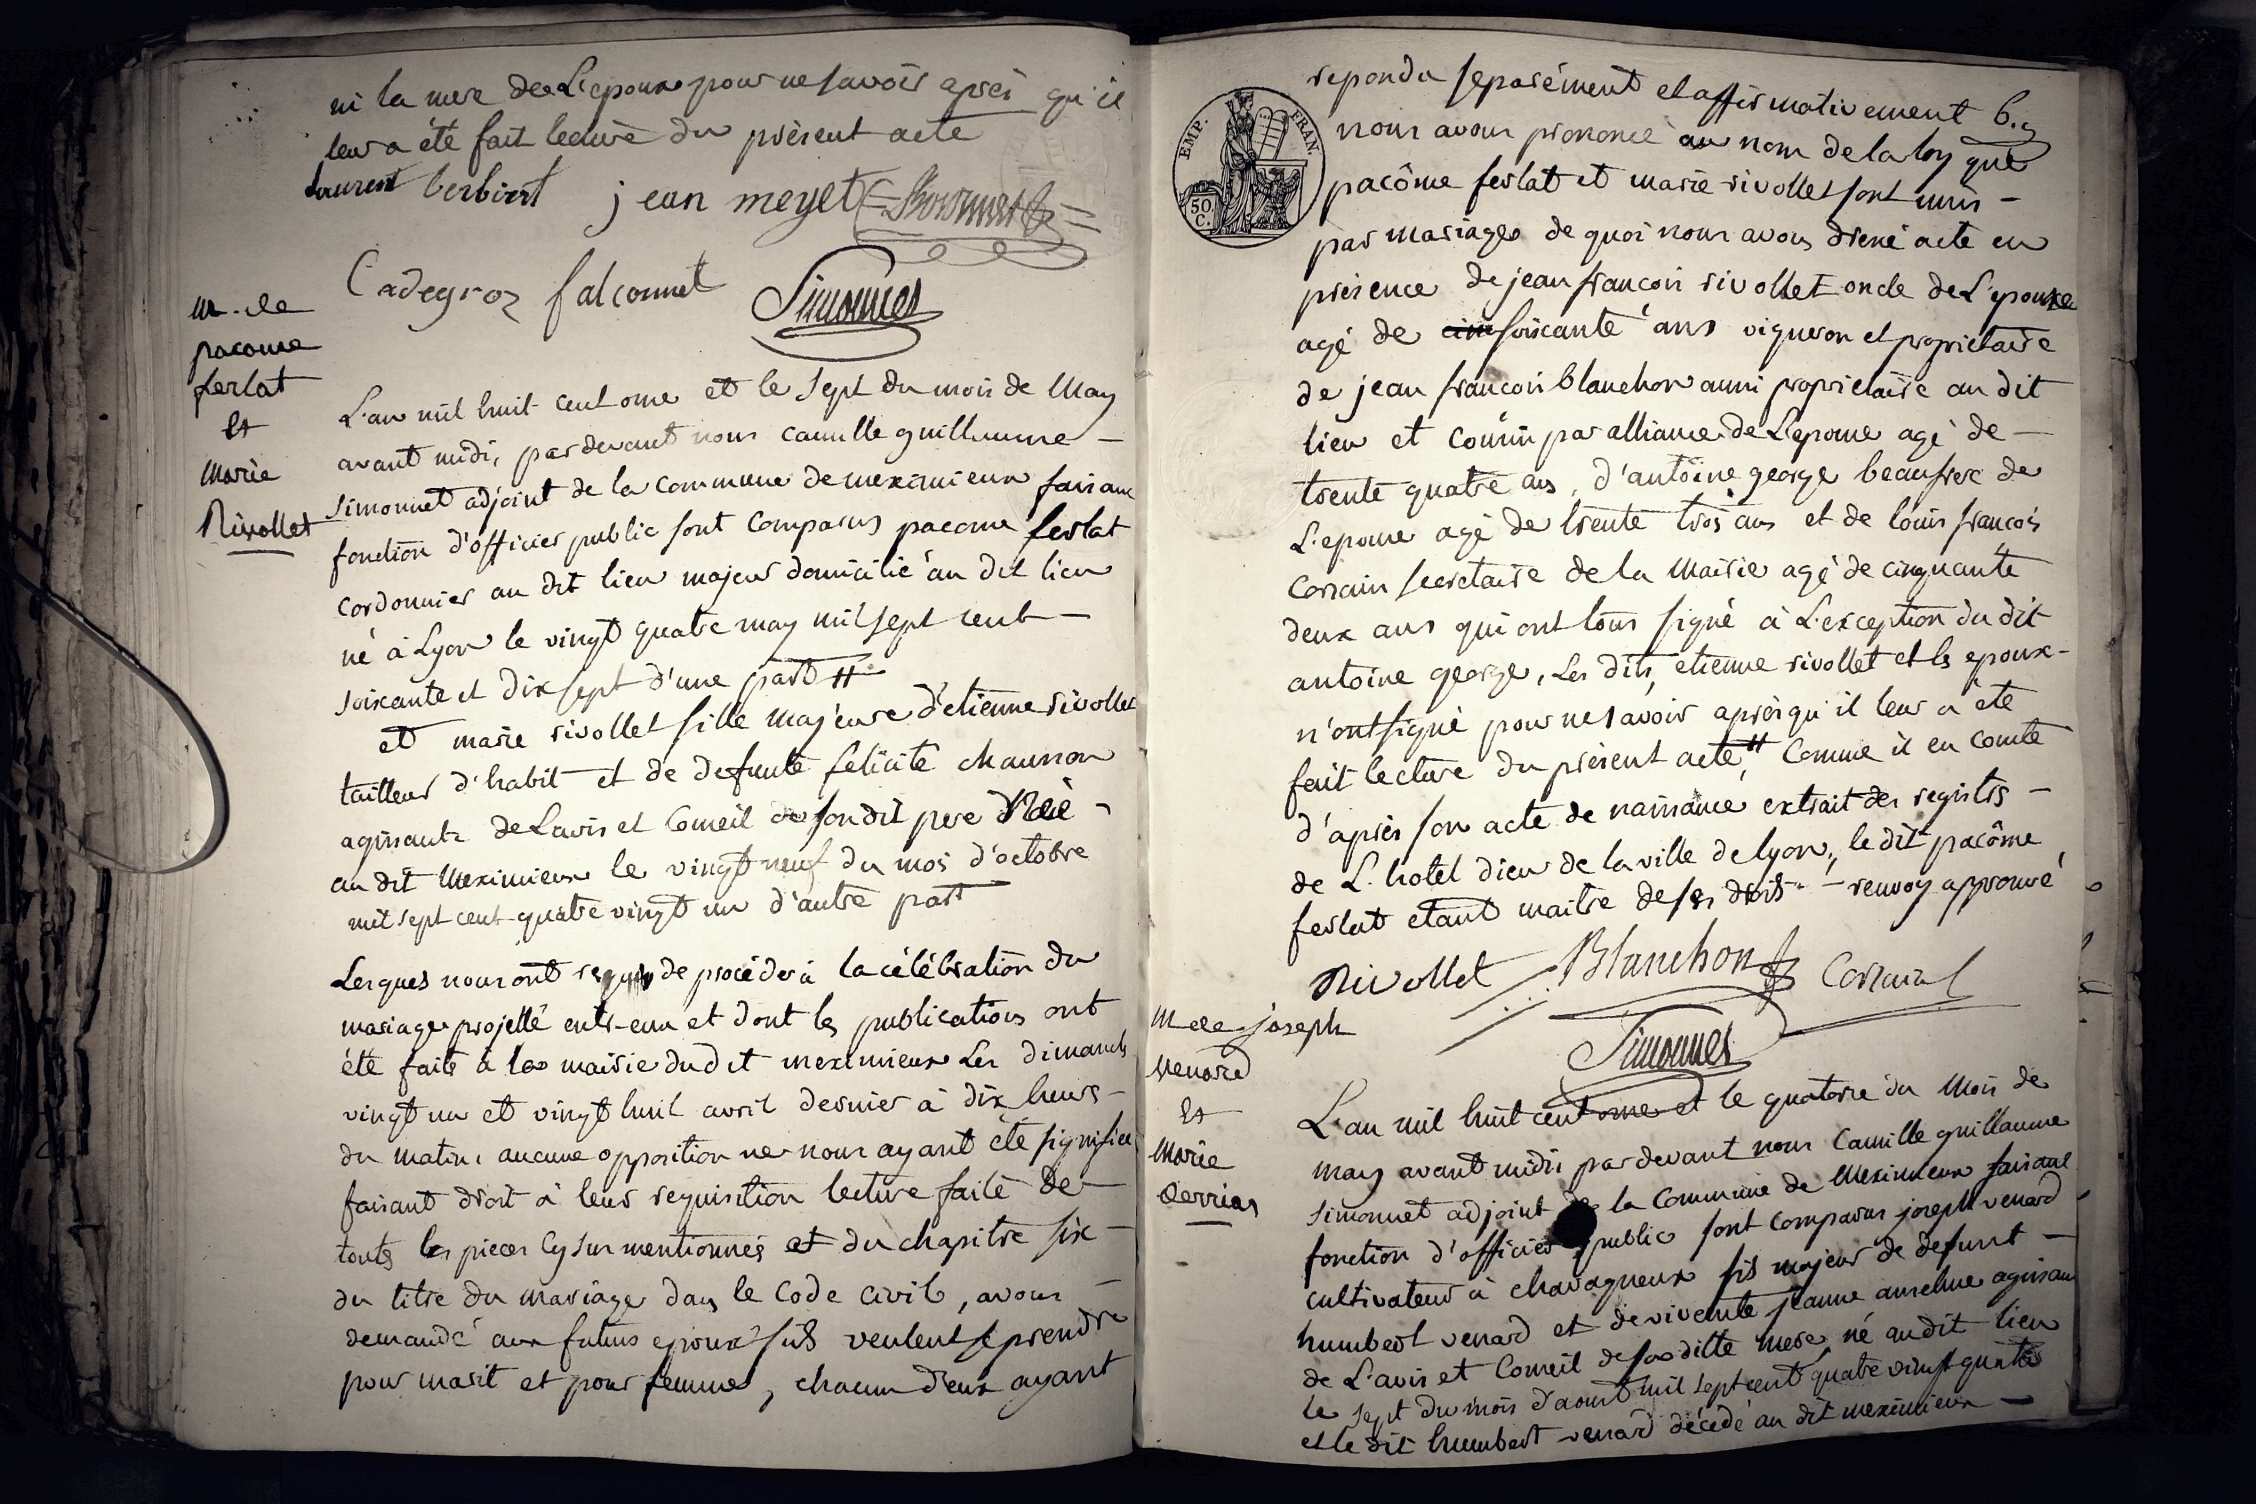 ni la mere de L'epoux pour ne savoir après qu'il
leur a été fait lecture du présent acte
Laurent berbiert jean meyet
Cadegroz falconnet Simonnet
m. de
pacome
ferlat
et
Marie
Rivollet
L'an mil huit cent onze et le sept du mois de May
avant midi, pardevant nous camille guillaume —
simonnet adjoint de la commune de meximieux faisant
fonction d'officier public sont comparus pacome ferlat
cordonnier au dit lieu majeur domicilié au dit lieu
né à Lyon le vingt quatre may mil sept cent —
soixante et dix sept d'une part #
et marie rivollet fille majeure d'etienne rivollet
tailleur d'habit et de defunte felicité chaunon
agissante de Lavis et Conseil de son dit pere Née -
au dit Meximieux le vingt neuf du mois d'octobre
mil sept cent quatre vingt un d'autre part
Lesques nous ont requis de procéder à la célébration du
mariage projetté entr-eux et dont les publications ont
été faite à la mairie dudit meximieux Les dimanch
vingt un et vingt huit avril dernier à dix heures —
du matin, aucune opposition ne nous ayant été signifiée
faisant droit à leur requisition lecture faite de —
touts les pieces cy sur mentionnés et du chapitre six —
du titre du mariage dans le Code civil, avons —
demandé aux futurs epoux s'ils veulent se prendre
pour marit et pour femme, chacun d'eux ayant
EMP. FRAN.
50 C.
repondu separément et affirmativement 6.
nous avons prononcé au nom de la loy que
pacôme ferlat et marie rivollet sont unis —
par mariage de quoi nous avons dréné acte en
presence de jean françois rivollet oncle de L'epouse
agé de soixante ans vigneron et proprietaire
de jean françois blanchon aussi proprietaire au dit
lieu et cousin par alliance de L'epouse agé de —
trente quatre ans, d'antoine george beaufrere de
L'epouse agé de trente trois ans et de louis françois
Corrain secretaire de la Mairie agé de cinquante
deux ans qui ont tous signé à L'exception du dit
antoine george, Les dits, etienne rivollet et ls epoux-
n'ont signé pour ne savoir après qu'il leur a été
fait lecture du présent acte, # Comme il en comte
d'après son acte de naissance extrait des registrs —
de L'hotel dieu de la ville de lyon, le dit pacôme
ferlat etant maitre de ses droits — renvoy approuvé
Rivollet Blanchon Corrain
Simonnet
M de joseph
Venard
et
Marie
Derrias
L'an mil huit cent onze et le quatorze du Mois de
may avant midi pardevant nous Camille guillaume
simonnet adjoint de la Commune de Meximieux faisant
fonction d'officier public sont comparus joseph venard
cultivateur à chavagneux fils majeur de defunt —
humbert venard et de vivente jeanne anselme agissant
de L'avis et Conseil de sa ditte mere, né audit lieu
le sept du mois d'aoust mil sept cent quatre vingt quatre
et le dit humbert venard décédé au dit meximieux —